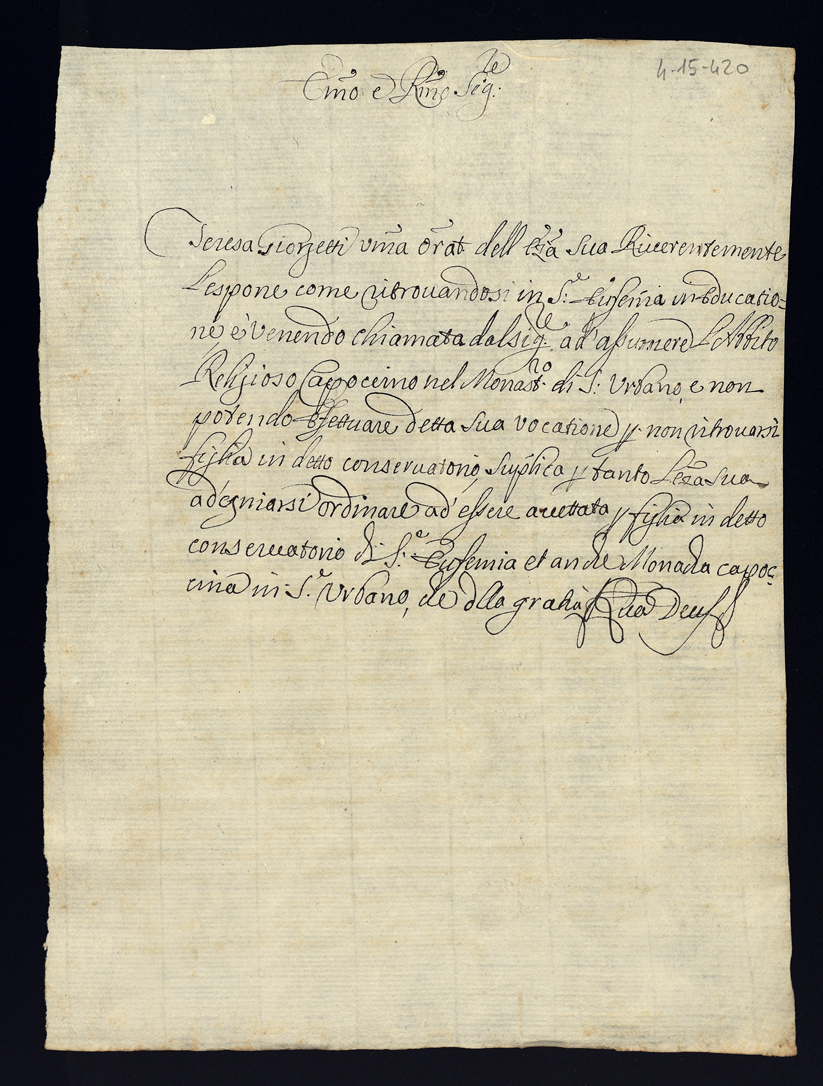 4-15-420
Emo e Rmo Sigre
Teresa Giorzetti vma Orat dell Eza Sua Riverentemente
L'espone come ritrovandosi in S.e Eufemia in Educatio=
ne e' venendo chiamata dal sigre ad' assumere L'Abbito
Religioso Capoccino nel Monastro di S: Urbano, e non
potendo Effettuare detta sua vocatione p non ritrovarsi
figlia in detto conservatorio, Suplica p tanto L'eza sua
ad'egniarsi ordinare ad' essere accettata p figlia in detto
conservatorio di S.e Eufemia et anche Monacha capoc
cina in S.e Urbano, che della gratia Qua Deus